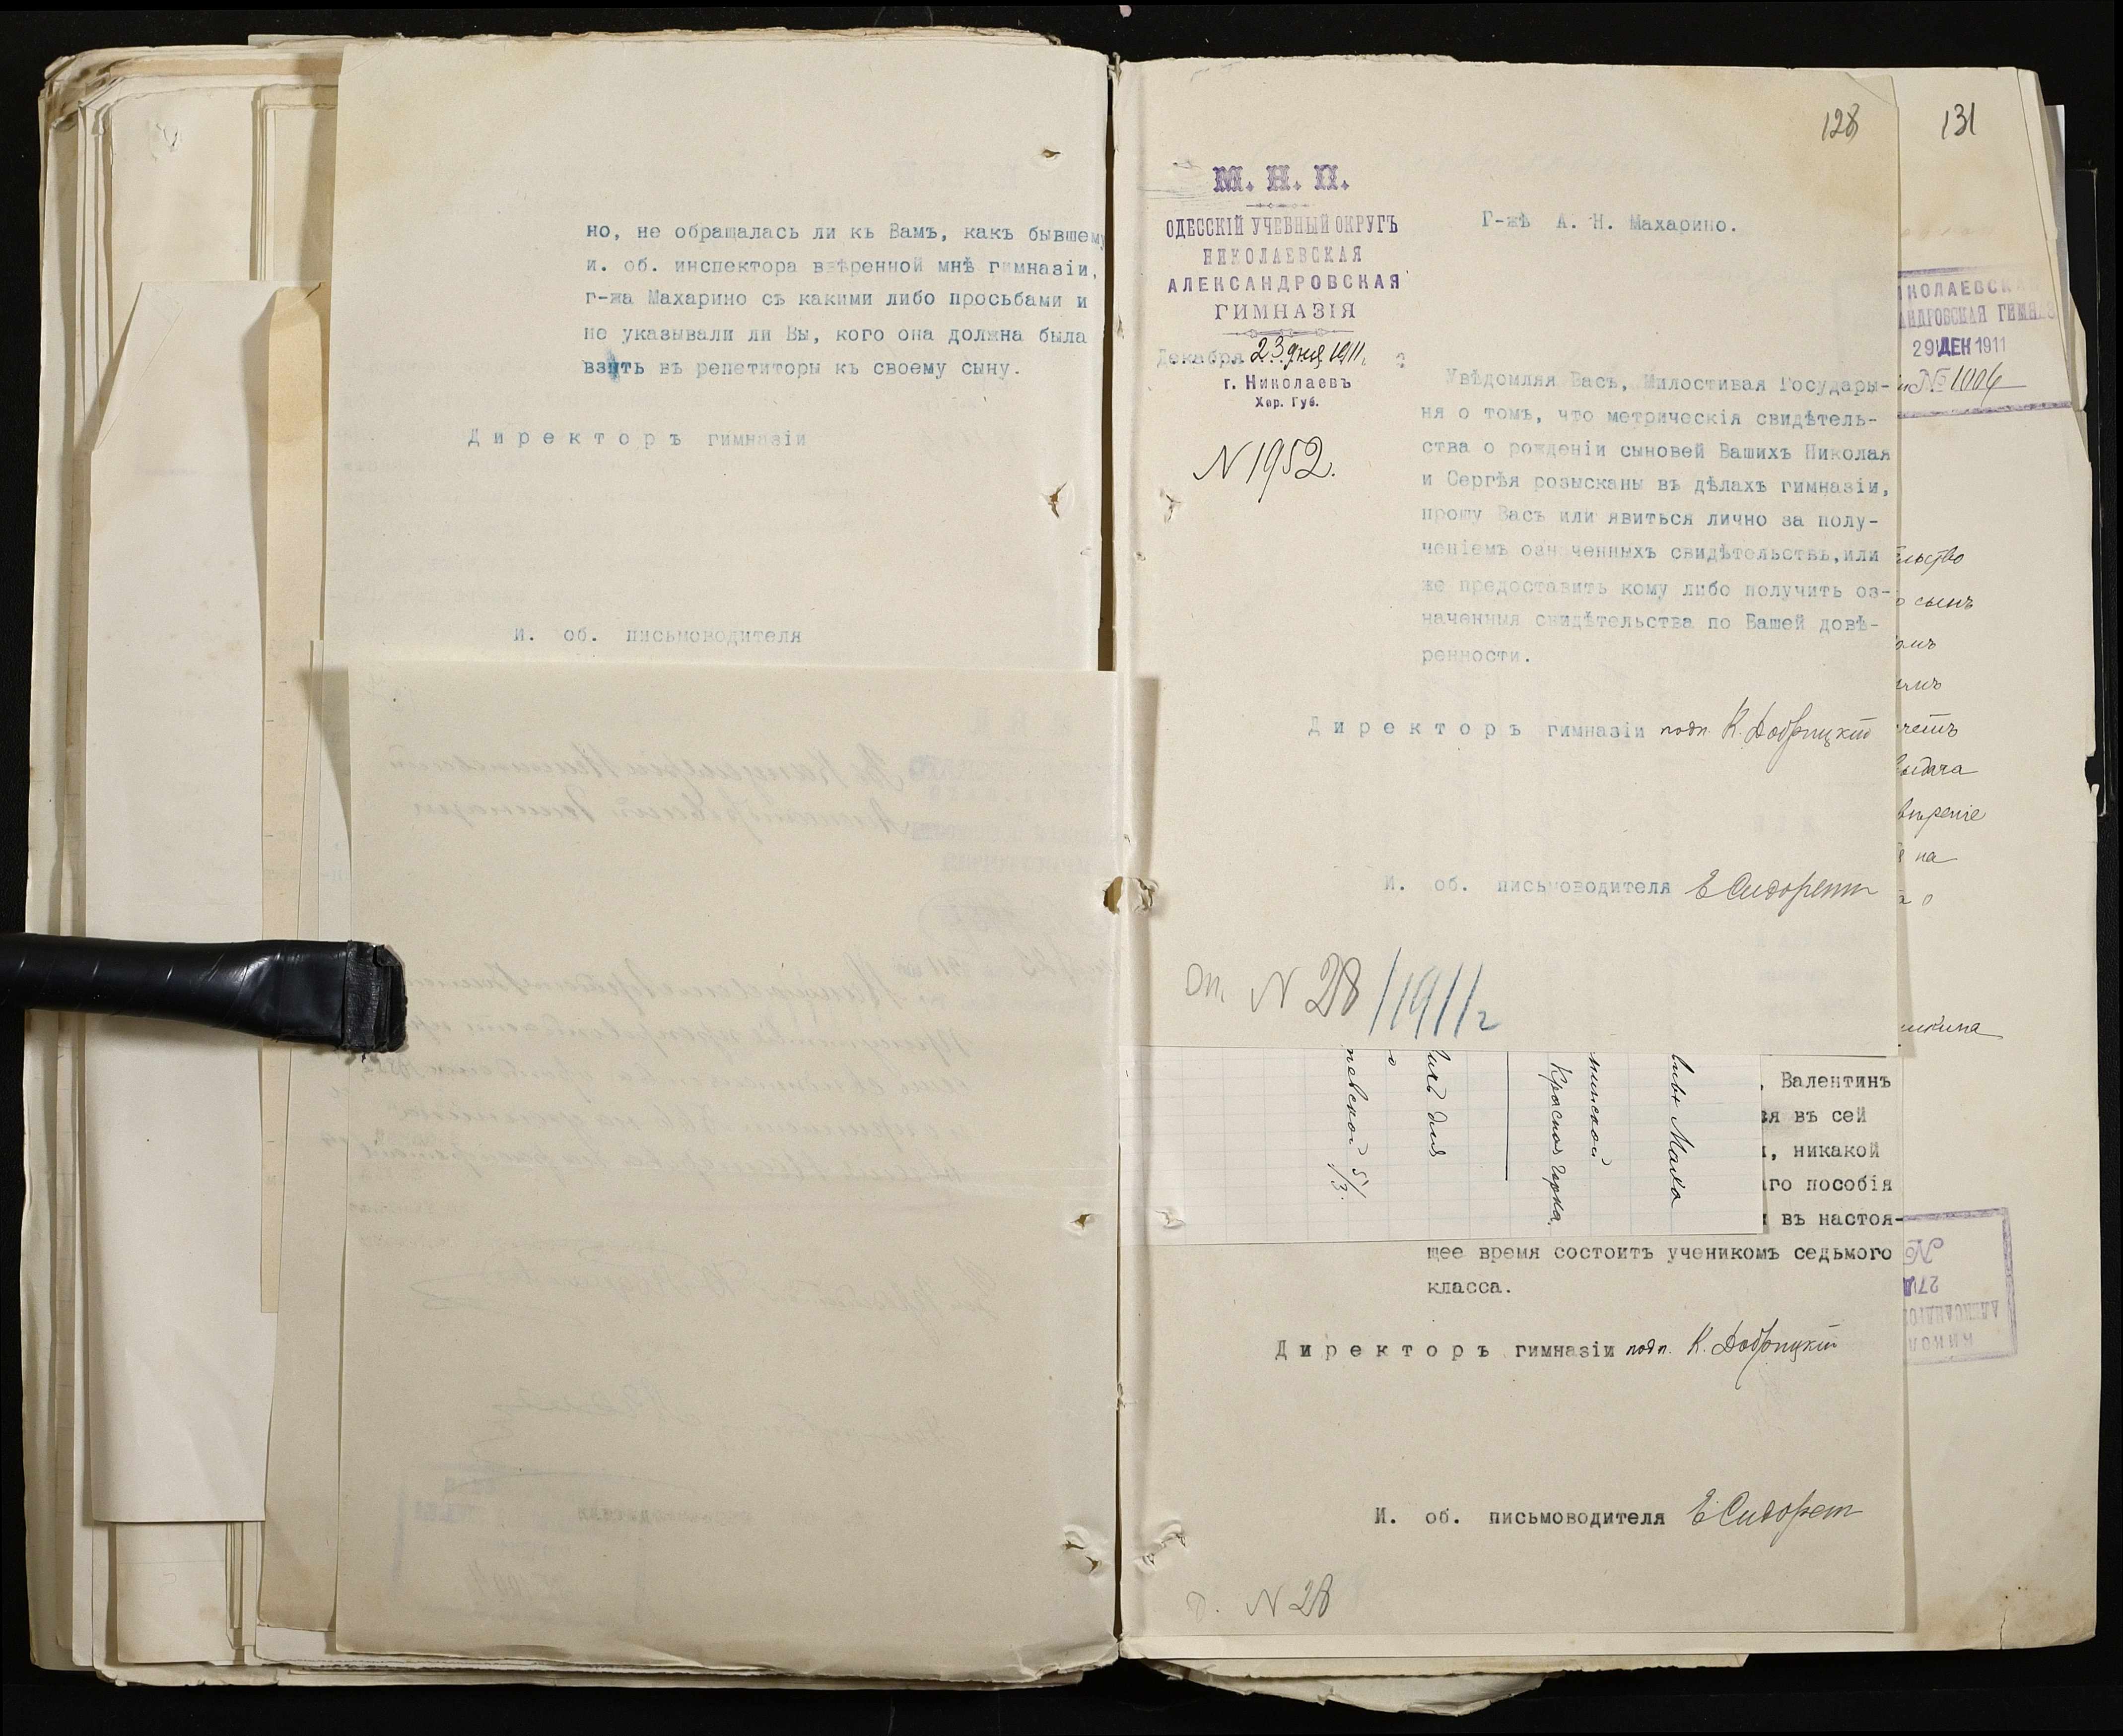 но, не обращалась ли къ Вамъ, какъ бывшему
и. об. инспектора ввѣренной мнѣ гимназіи,
г-жа Махарино съ какими либо просьбами и
не указывали ли Вы, кого она должна была
взять въ репетиторы къ своему сыну.
Директоръ гимназіи
И. об. письмоводителя
128
131
М. Н. П.
ОДЕССКІЙ УЧЕБНЫЙ ОКРУГЪ
НИКОЛАЕВСКАЯ
АЛЕКСАНДРОВСКАЯ
ГИМНАЗІЯ
Декабря 23 дня 1911 г.
г. Николаевъ
Хер. Губ.
N 1952.
Г-жѣ А. Н. Махарино.
Увѣдомляя Васъ, Милостивая Государы-
ня о томъ, что метрическія свидѣтель-
ства о рожденіи сыновей Вашихъ Николая
и Сергѣя розысканы въ дѣлахъ гимназіи,
прошу Васъ или явиться лично за полу-
ченіемъ озн ченныхъ свидѣтельствъ,или
же предоставить кому либо получить оз-
наченныя свидѣтельства по Вашей довѣ-
ренности.
Директоръ гимназіи подп. К. Добрицкій
И. об. письмоводителя Е Сидорен
N 28/1911 г
ИКОЛАЕВСКАЯ
АНДРОВСКАЯ ГИМНАЗ
29 ДЕК 1911
№ 1004
ельство
о сынъ
выдача
на
Красная горка,
для
невской 5/3.
. Валентинъ
ся въ сей
, никакой
го пособія
въ настоя-
щее время состоитъ ученикомъ седьмого
класса.
Директоръ гимназіи подп. К. Добрицкій
И. об. письмоводителя Е Сидорен
N 28
№
27